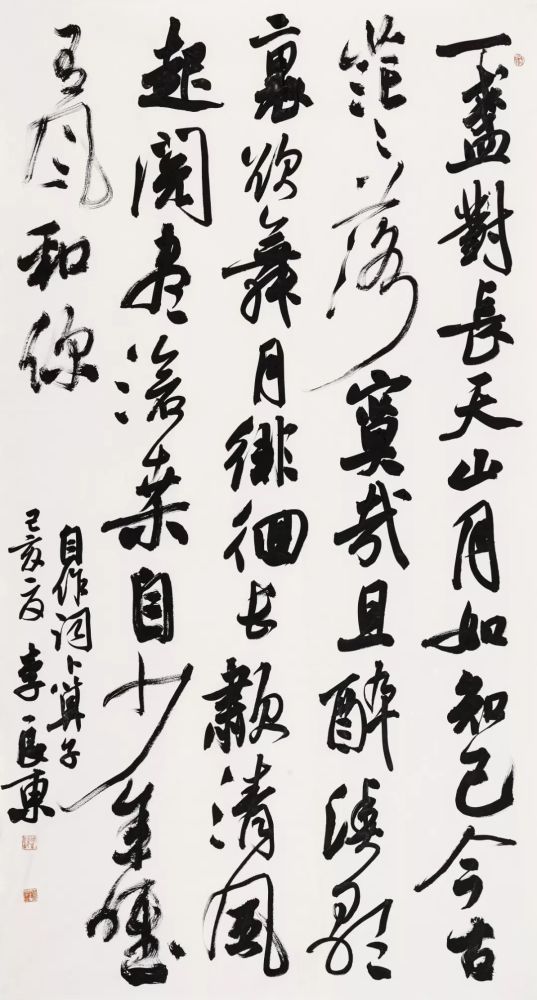 一盞對長天山月如知己今古
茫茫落寞哉且醉
裏欲舞月徘徊長歗清風
起閱盡滄桑自少年唯
有風和你
自作詞卜算子
己亥夏李良東